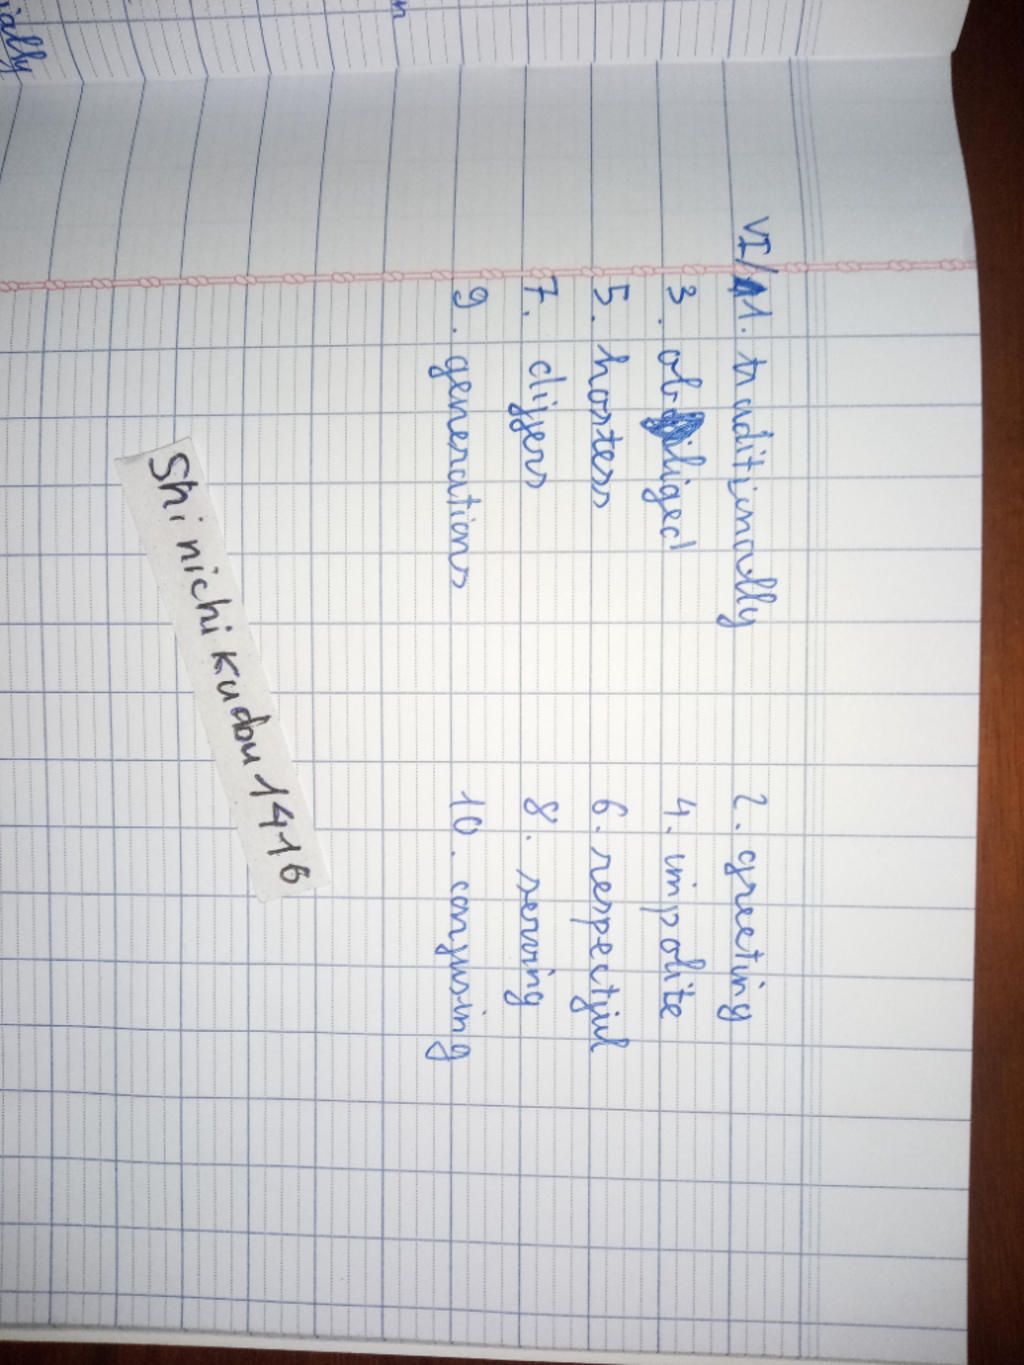 ially
n
VI/1. traditionally 2. greeting
3. obliged 4. impolite
5. hostess 6. respectful
7. differs 8. serving
9. generations 10. confusing
Shinichikudou1416